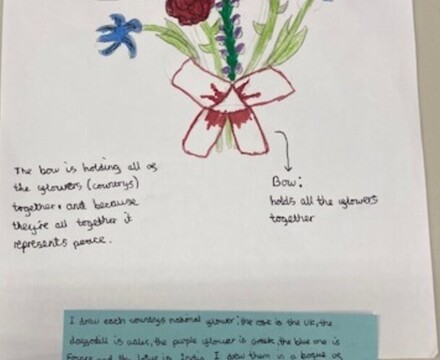 The bow is holding all of
the flowers (countrys)
together. and because
they're all together it
represents peace.
Bow:
holds all the flowers
together
I draw each countrys national flower; the rose is the UK, the
daffodill is wales, the purple flower is Greek, the blue one is
and the lotus is India. I drew them in a